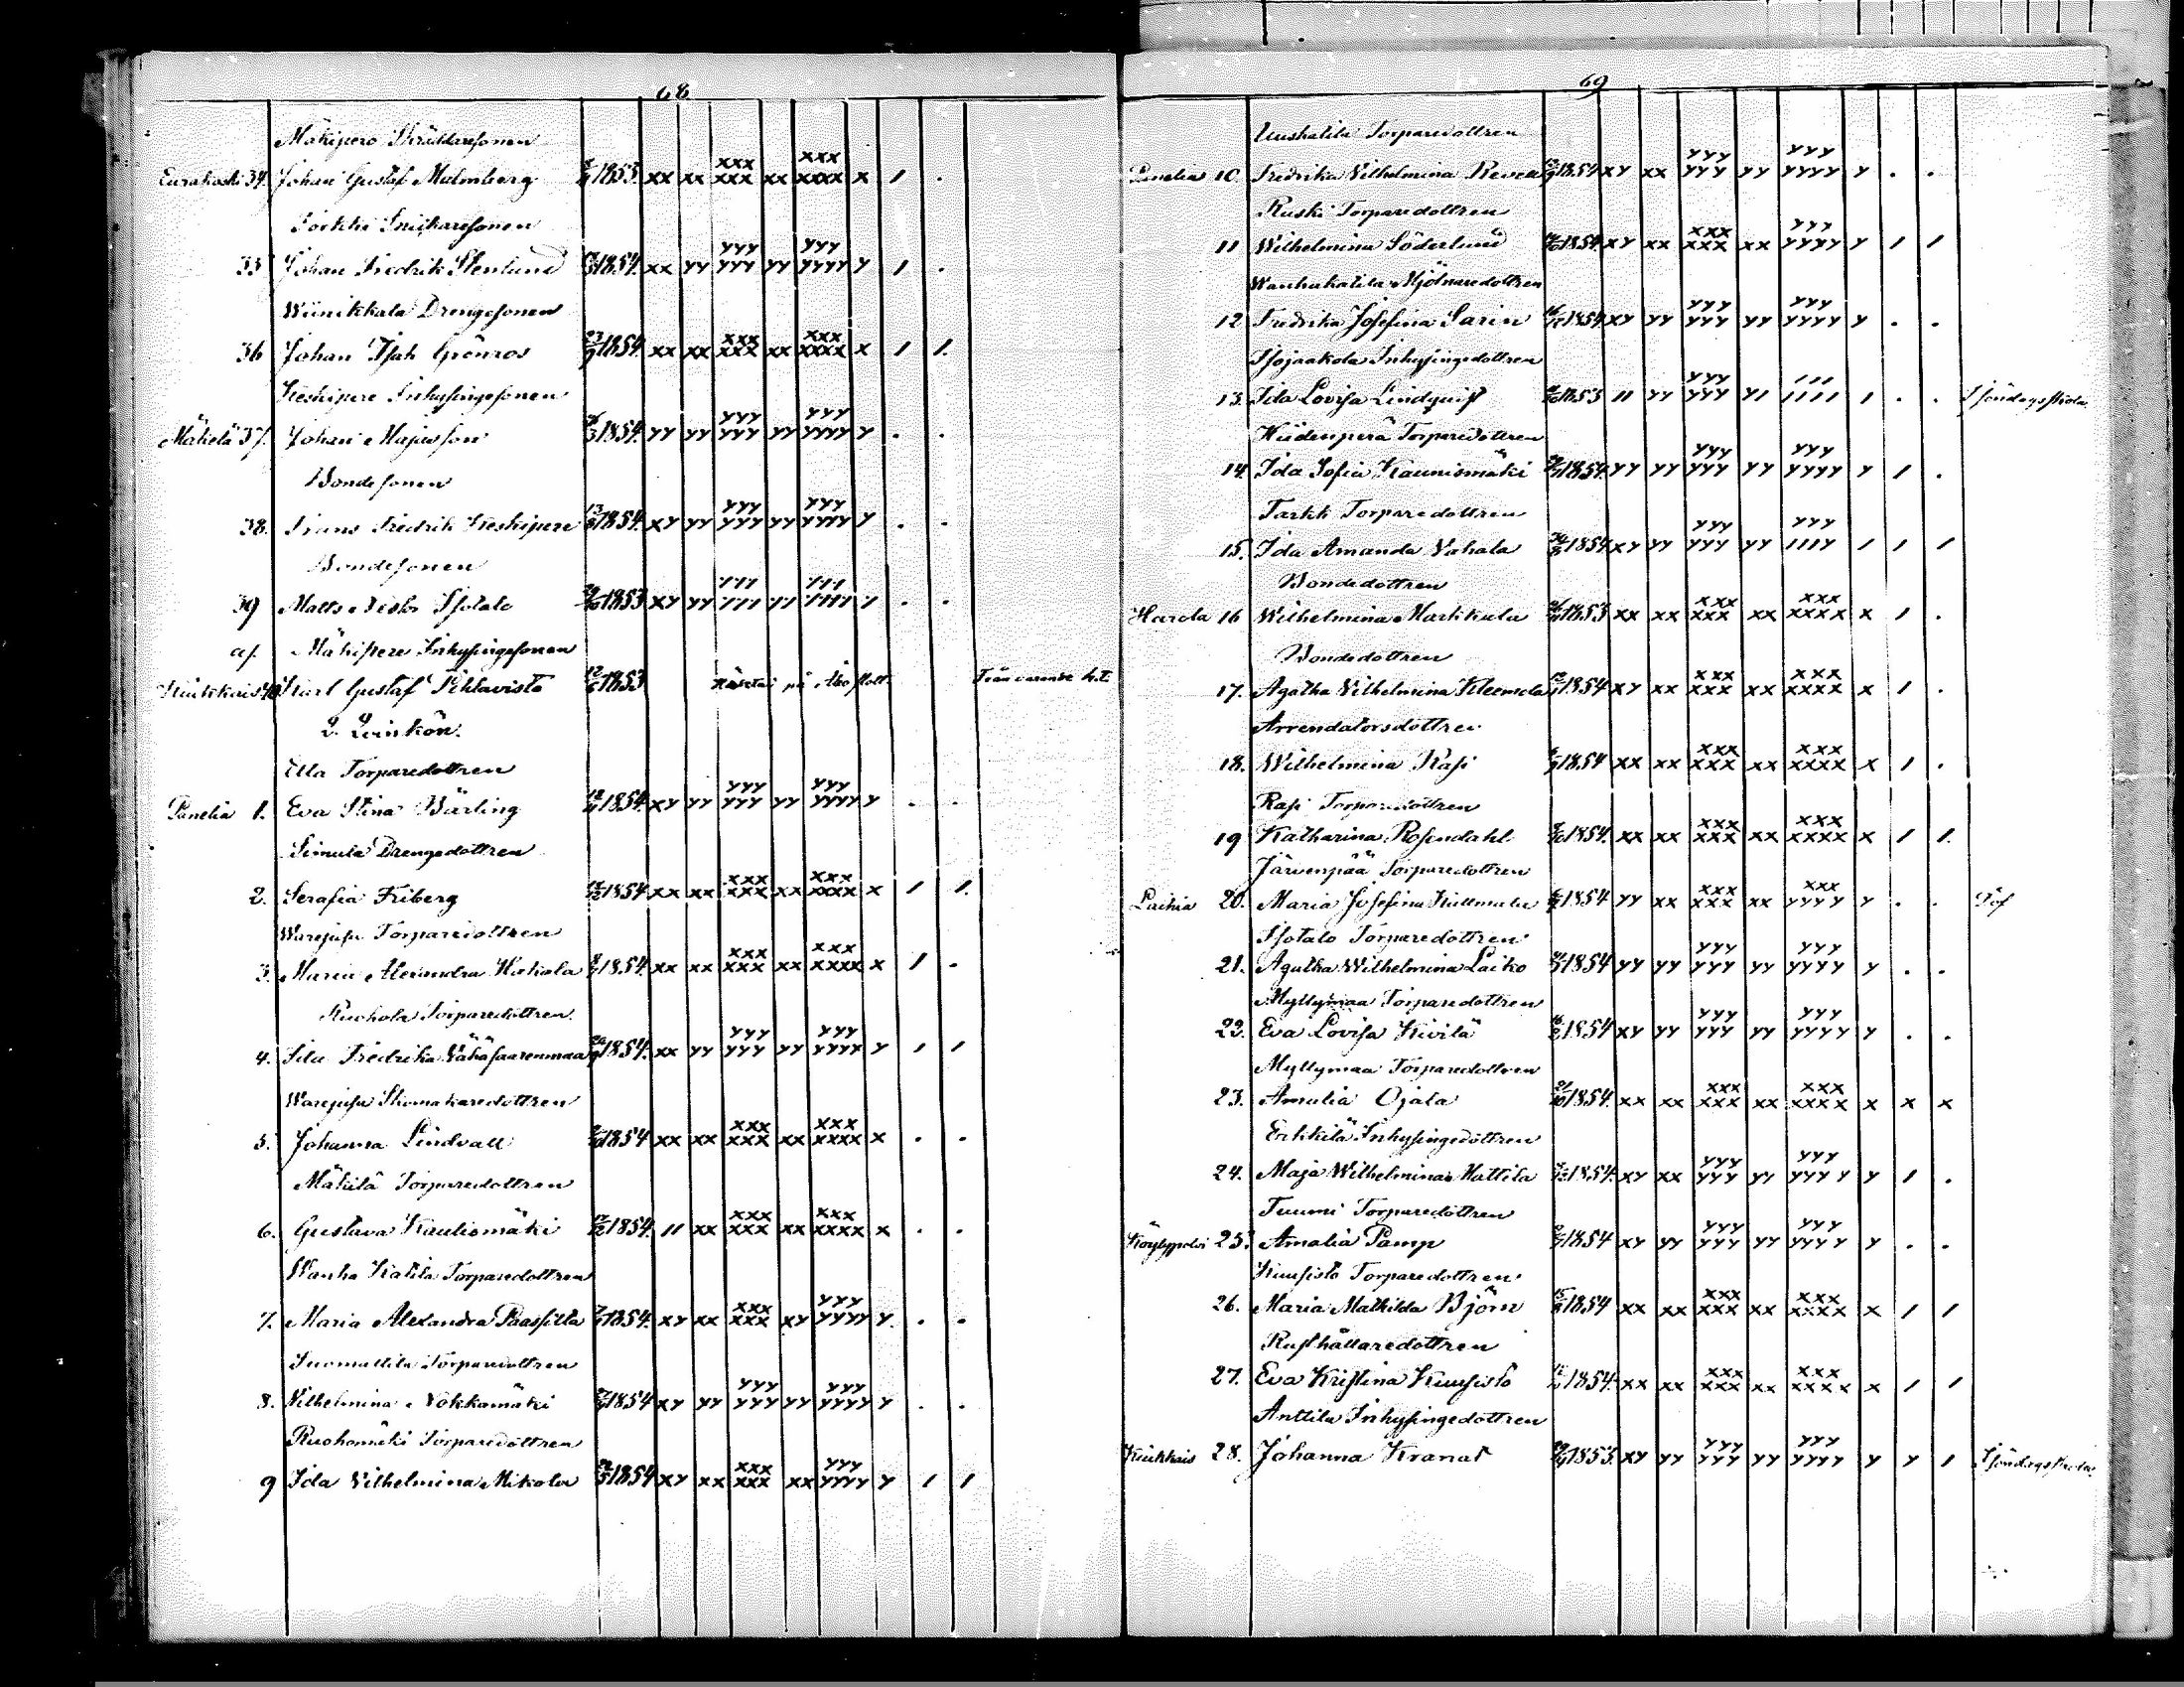 68
Mäkipere Skräddaresonen
Eurakoski 34. Johan Gustaf Malmberg 1853. xx xx xxx xxx xx xxx xxxx x / .
Sorkki Snickaresonen
35 Johan Fredrik Stenlund 1854. xx yy yyy yyy yy yyy yyyy y / .
Wiinikkala Drengesonen
36 Johan Isak Grönros 1854. xx xx xxx xxx xx xxx xxxx x / /.
Keskipere Inhysingesonen
Mäkelä 37. Johan Majasson 1854. yy yy yyy yyy yy yyy yyyy y . .
Bondesonen
38. Frans Fredrik Keskipere 1854. xy yy yyy yyy yy yyy yyyy y . .
Bondesonen
39 Matts Isotalo 1853 xy yy /// /// yy /// //// / . .
af. Mäkipere Inhysingesonen
Kiukkais 40. Karl Gustaf Pihlavisto 1853 på Åbo slott.
2. Qvinkön.
Torparedottren
Panelia 1. Eva Stina Bärling 1854. xy yy yyy yyy yy yyy yyyy y . .
Simula Drengedottren
2. Serafia Friberg 1854 xx xx xxx xxx xx xxx xxxx x / /.
Warejusu Torparedottren
3. Maria Alexandra Kakola 1854. xx xx xxx xxx xx xxx xxxx x / .
Ruohola Torparedottren.
4. Ida Fredrika Vähäsaarenmaa 1854. xx yy yyy yyy yy yyy yyyy y / /
Warejusu Skomakaredottren
5. Johanna Lindvall 1854 xx xx xxx xxx xx xxx xxxx x . .
Mäkilä Torparedottren
6. Gustava Kaulismäki 1854. // xx xxx xxx xx xxx xxxx x . .
Wanha Katila Torparedottren
7. Maria Alexandra Paassilta 1854. xy xx xxx xxx xy yyy yyyy y . .
Suomattila Torparedottren
8. Vilhelmina Nokkamäki 1854 xy yy yyy yyy yy yyy yyyy y . .
Ruohomäki Torparedottren
9 Ida Vilhelmina Mikola 1854 xy xx xxx xxx xx yyy yyyy y / /
69
Uuskatila Torparedottren
Panelia 10. Fredrika Vilhelmina 1854 xy xx yyy yyy yy yyy yyyy y . .
Ruski Torparedottren
11 Wilhelmina Söderlund 1854. xy xx xxx xxx xx yyy yyyy y / /
Wanhakatila Mjölnaredottren
12 Fredrika Josefina Sarin 1854. xy yy yyy yyy yy yyy yyyy y . .
Isojaakola Inhysingedottren
13. Ida Lovisa Lindqvist 1853 // yy yyy yyy y/ /// //// / . . I söndagsskola
Hiidenperä Torparedottren
14. Ida Sofia Kaunismäki 1854. yy yy yyy yyy yy yyy yyyy y / .
Tarkk Torparedottren
15. Ida Amanda Vahala 1854 xy yy yyy yyy yy yyy ///y / / /
Bondedottren
Harola 16 Wilhelmina Markkula 1853 xx xx xxx xxx xx xxx xxxx x / .
Bondedottren
17. Agatha Vilhelmina Kleemola 1854 xy xx xxx xxx xx xxx xxxx x / .
Arrendatorsdottren
18. Wilhelmina Rasi 1854 xx xx xxx xxx xx xxx xxxx x / .
Rasi Torparedottren
19 Katharina Rosendahl 1854. xx xx xxx xxx xx xxx xxxx x / /.
Järvenpää Torparedottren
Laihia 20. Maria Josefina Kullmala 1854 yy xx xxx xxx xx xxx yyyy y . . Döf
Isotalo Torparedottren
21. Agatha Wilhelmina Laiko 1854 yy yy yyy yyy yy yyy yyyy y . .
Myllymaa Torparedottren
22. Eva Lovisa Kivilä 1854 xy yy yyy yyy yy yyy yyyy y . .
Myllymaa Torparedottren
23. Amalia Ojala 1854. xx xx xxx xxx xx xxx xxxx x x x
Erkkilä Inhysingedottren
24. Maja Wilhelmina Mattila 1854. xy xx yyy yyy yy yyy yyyy y / .
Tuumi Torparedottren
Köylypolvi 25. Amalia Pamp 1854 xy yy yyy yyy yy yyy yyyy y . .
Kuusisto Torparedottren
26. Maria Mathilda Björn 1854 xx xx xxx xxx xx xxx xxxx x / /
Rusthållaredottren
27. Eva Kristina Kuusisto 1854. xx xx xxx xxx xx xxx xxxx x / /
Anttila Inhysingedottren
Kiukkais 28. Johanna Kranat 1853. xy yy yyy yyy yy yyy yyyy y y / I söndagsskola